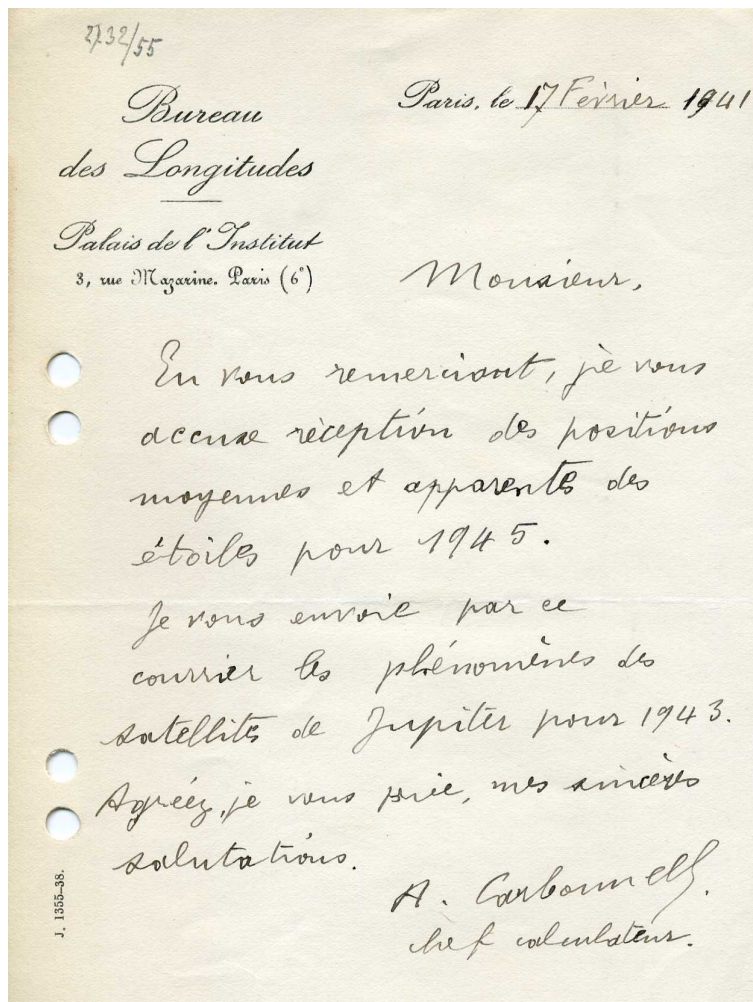 2732/55
Bureau
des Longitudes
Palais de l'Institut
3, rue Mazarine. Paris (6e)
Paris, le 17 Février 1941
Monsieur,
En vous remerciant, je vous
accuse réception des positions
moyennes et apparentes des
étoiles pour 1945.
Je vous envoie par ce
courrier les phénomènes des
satellites de Jupiter pour 1943.
Agréez, je vous prie, mes sincères
salutations.
A. Carbonnell.
chef calculateur.
J. 1355-38.